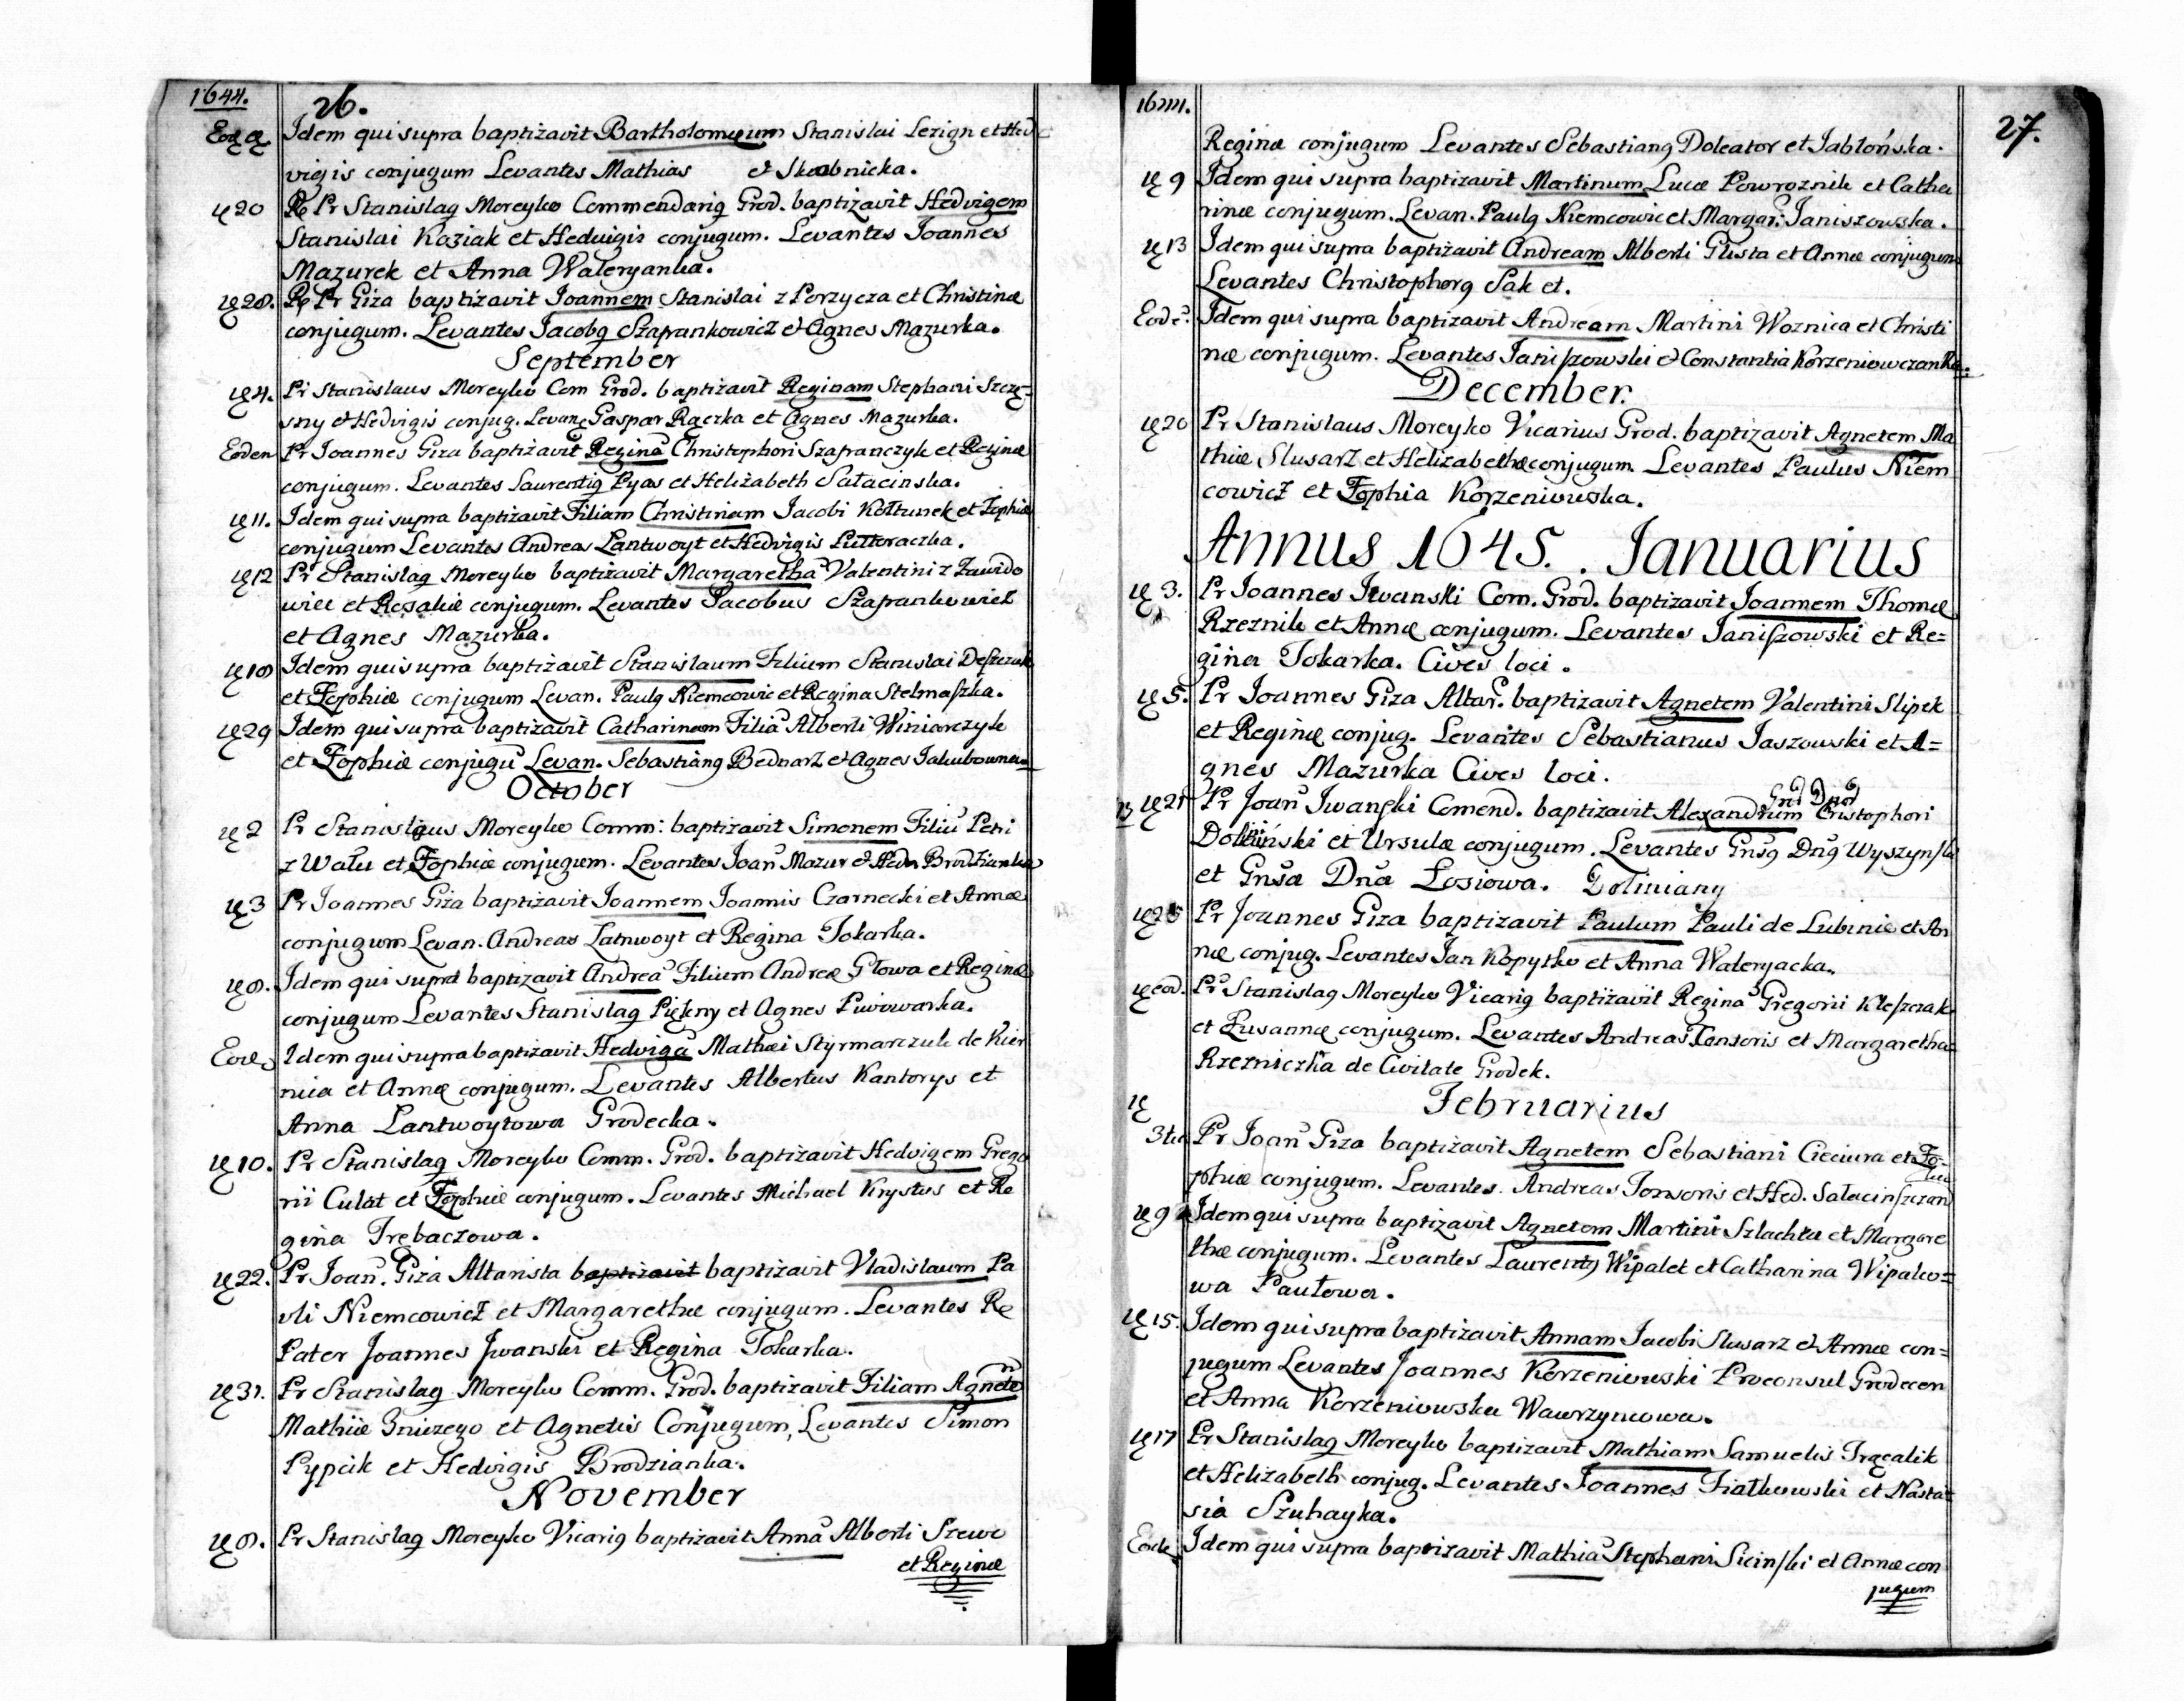 1644. 26.
Idem qui supra baptizavit Bartholomeum Stanislai Lezign et Hed
vigis conjugum Levantes Mathias et Skrobnicka.
20 Pr Stanislaq Moreyko Commendariq Grod. baptizavit Hedvigem
Stanislai Koziak et Hedvigis conjugum. Levantes Joannes
Mazurek et Anna Waleryanka.
28. Pr Giza baptizavit Joannem Stanislai z Porzycza et Christinæ
conjugum. Levantes Jacobq Szafrankowicz et Agnes Mazurka.
September
4. Pr Stanislaus Moreyko Com Grod. baptizavit Reginam Stephani Szczę-
sny et Hedvigis conjug. Levan. Gaspar Rączka et Agnes Mazurka.
Eoden Pr Joannes Giza baptizavit Regina Christophori Szafranczyk et Reginæ
conjugum. Levantes Laurentiq Pyas et Helizabeth Sałacinska.
11. Idem qui supra baptizavit Filiam Christinam Jacobi Kołtunek et Zophiæ
conjugum Levantes Andreas Lantwoyt et Hedvigis Puttoraczka.
12 Pr Stanislaq Moreyko baptizavit Margaretha Valentini z Zawido
wicc et Rosaliæ conjugum. Levantes Jacobus Szafrankowicz
et Agnes Mazurka.
18 Idem qui supra baptizavit Stanislaum Filium Stanislai Deszczak
et Zophiæ conjugum Levan. Paulq Niemcowic et Regina Stelmaszka.
29 Idem qui supra baptizavit Catharinam Filia Alberti Winiarczyk
et Zophiæ conjugu Levan. Sebastianq Bednarz et Agnes Jakubowna
October
2 Pr Stanislaus Moreyko Comm: baptizavit Simonem Filiu Petri
z Wału et Zophiæ conjugum. Levantes Joan Mazur et Hedv Brodzianka
3 Pr Joannes Giza baptizavit Joannem Joannis Czarnecki et Annæ
conjugum Levan. Andreas Latnwoyt et Regina Tokarka.
8. Idem qui supra baptizavit Andrea Filium Andreæ Głowa et Reginæ
conjugum Levantes Stanislaq Piękny et Agnes Piwowarka.
Eode Idem qui supra baptizavit Hedviga Mathæi Styrmarczuk de Kier
nica et Annæ conjugum. Levantes Albertus Kantorys et
Anna Lantwoytowa Grodecka.
10. Pr Stanislaq Moreyko Comm. Grod. baptizavit Hedvigem Grego
rii Culat et Zophiæ conjugum. Levantes Michael Krystus et Re
gina Trębaczowa.
22. Pr Joan. Giza Altarista baptizavit baptizavit Vladislaum Pa
vli Niemcowicz et Margarethæ conjugum. Levantes Re
Pater Joannes Jwanski et Regina Tokarka.
31. Pr Stanislaq Moreyko Comm. Grod. baptizavit Filiam Agnete
Mathiæ Gnizego et Agnetis Conjugum, Levantes Simon
Pypcik et Hedvigis Brodzianka.
November
8. Pr Stanislaq Moreyko Vicariq baptizavit Anna Alberti Szewc
et Reginæ
27.
Reginæ conjugum Levantes Sebastianq Doleator et Jabłońska.
9 Idem qui supra baptizavit Martinum Lucæ Powroznik et Catha
rinæ conjugum. Levan. Paulq Niemcowic et Margar: Janiszowska.
13 Idem qui supra baptizavit Andream Alberti Glista et Annæ conjugum
Levantes Christophorq Sak et.
Eode. Idem qui supra baptizavit Andream Martini Woznica et Christi
næ conjugum. Levantes Janiszowski et Constantia Korzeniowczanka.
December.
20 Pr Stanislaus Moreyko Vicarius Grod. baptizavit Agnetem Ma
thiæ Slusarz et Helizabethæ conjugum. Levantes Paulus Niem
cowicz et Zophia Korzeniowska.
Annus 1645. Januarius
3. Pr Joannes Jwanski Com. Grod. baptizavit Joannem Thomæ
Rzeznik et Annæ conjugum. Levantes Janiszowski et Re=
gina Tokarka. Cives loci.
5. Pr Joannes Giza Altar. baptizavit Agnetem Valentini Slipek
et Reginæ conjug. Levantes Sebastianus Jaszowski et A=
gnes Mazurka Cives loci.
21 Pr Joan Jwanski Comend. baptizavit Alexandrum Cristophori
Doliński et Ursulæ conjugum. Levantes Gnsq Dnq Wyszynski
et Gnsa Dna Łosiowa. Doliniany
25 Pr Joannes Giza baptizavit Paulum Pauli de Lubinie et An
næ conjug. Levantes Jan Kopytko et Anna Waleryacka.
eod. Pr Stanislaq Moreyko Vicariq baptizavit Regina Gregorii Kleszczak
et Zusannæ conjugum. Levantes Andreas Tonsoris et Margaretha
Rzezniczka de Civitate Grodek.
Februarius
3tia Pr Joan Giza baptizavit Agnetem Sebastiani Cieciura et Zo-
phiæ conjugum. Levantes. Andreas Tonsoris et Hed. Sałacinszczan
ka
9 Idem qui supra baptizavit Agnetem Martini Szlachta et Margare
thæ conjugum. Levantes Laurentq Wipalet et Catharina Wipalco=
wa Pautowa.
15. Idem qui supra baptizavit Annam Jacobi Slusarz et Annæ con=
jugum Levantes Joannes Korzeniowski Proconsul Grodecen
et Anna Korzeniowska Wawrzyncowa.
17 Pr Stanislaq Moreyko baptizavit Mathiam Samuelis Trącalik
et Helizabeth conjug. Levantes Joannes Fiałkowski et Nasta=
sia Szuhayka.
Eode Idem qui supra baptizavit Mathia Stephani Sicinski et Annæ con
jugum